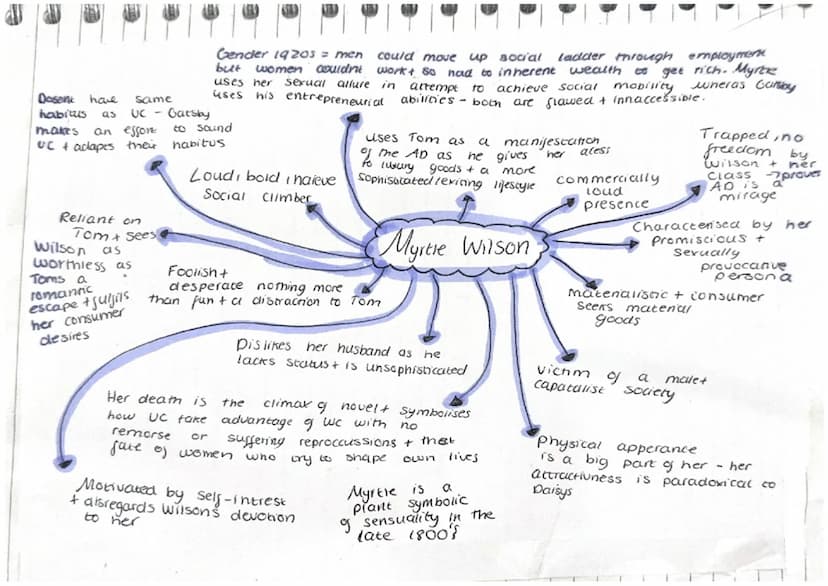 Gender 1920s = men could move up social ladder through employment
but women couldnt work + so had to inherent wealth to get rich. Myrtle
uses her sexual allure in attempt to achieve social mobility wheras Gatsby
uses his entrepreneurial abilities - both are flawed + innaccessible.
Dosent have same
habitus as UC - Gatsby
makes an effort to sound
UC + adapes their habitus
Loud, bold, naieve
social climber
uses Tom as a manifestation
of the AD as he gives her acess
to luxury goods + a more
sophisticated/exciting lifestyle
commercially
loud
presence
Trapped, no
freedom by
Wilson + her
class → proves
AD is a
mirage
Reliant on
Tom + sees
Wilson as
worthless as
Toms a
romantic
escape + fulfils
her consumer
desires
Myrtle Wilson
Characterised by her
promiscious +
sexually
provocative
persona
Foolish +
desperate nothing more
than fun + a distraction to Tom
Materialistic + consumer
seeks material
goods
Dislikes her husband as he
lacks status + is unsophisticated
victim of a male +
capatalist society
Her death is the climax of novel + symbolises
how UC take advantage of WC with no
remorse or suffering reproccussions + that
fate of women who try to shape own lives
Physical apperance
is a big part of her - her
attractivness is paradoxical to
Daisys
Motivated by self-intrest
+ disregards Wilsons devotion
to her
Myrtle is a
plant symbolic
of sensuality in the
late 1800's